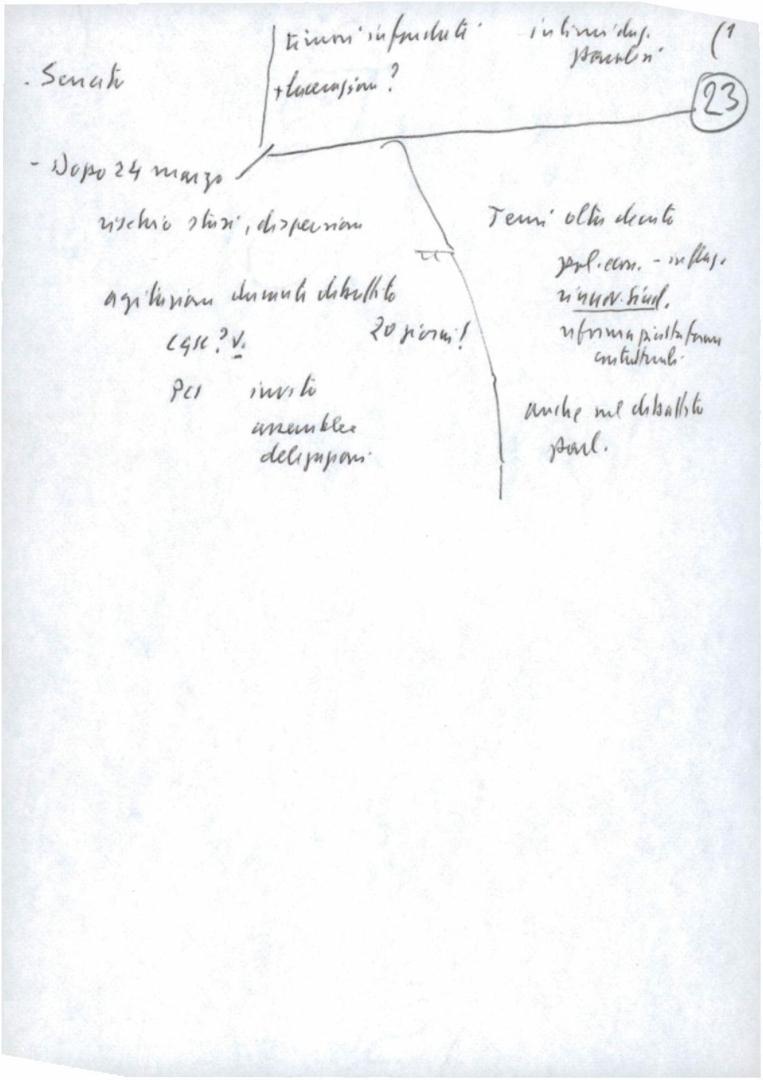 timori infondati intimidaz. (1
paralisi
- Senato
+ lacerazioni?
23
- Dopo 24 marzo
rischio stasi, dispersione
Temi oltre decreto
pol. econ. - inflaz.
agitazioni durante dibattito
rinnov. sind.
20 giorni!
riforma piattaforme
CGIL? V.
contrattuali
PCI invito
anche nel dibattito
assemblee
parl.
delegazioni